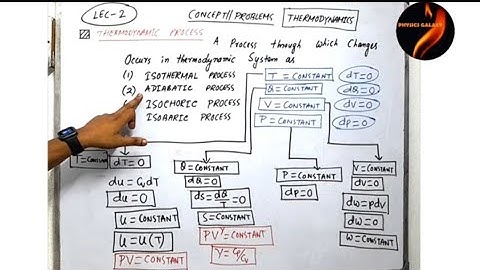 LEC-2
CONCEPT//PROBLEMS
THERMODYNAMICS
PHYSICS GALAXY
THERMODYNAMIC PROCESS
A Process through which Changes
Occurs in thermodynamic System as
(1) ISOTHERMAL PROCESS
(2) ADIABATIC PROCESS
ISOCHORIC PROCESS
ISOBARIC PROCESS
T = CONSTANT dT=0
Q = CONSTANT dQ=0
V = CONSTANT dV=0
P = CONSTANT dP=0
T = CONSTANT dT=0
du = CvdT
du = 0
U = CONSTANT
U = U(T)
PV = CONSTANT
Q = CONSTANT
dQ = 0
ds = dQ/T = 0
S = CONSTANT
PV^γ = CONSTANT
γ = Cp/Cv
P = CONSTANT
dP = 0
V = CONSTANT
dV = 0
dw = pdv
dw = 0
W = CONSTANT